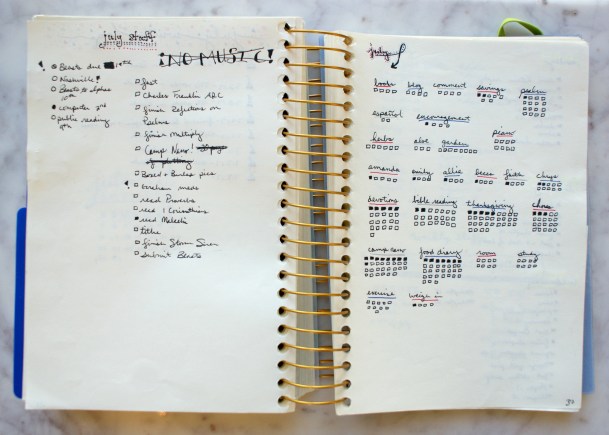 july stuff
¡NO MUSIC!
Beasts due 10th
Nashville!
Beasts to
10th
computer 2nd
public reading
9th
fast
Charles Franklin ABC
finish Reflections on
Psalms
finish multiply
Camp Nano!
Boxed + Burden pics
graham means
read Proverbs
read 1 Corinthians
read Malachi
tithe
finish Storm Siren
submit Beasts
july
books blog comment savings psalms
español encouragement
herbs aloe garden piano
amanda emily allie becca faith chase
devotions bible reading thanksgiving chores
camp nano food diary room study
exercise weigh in
37